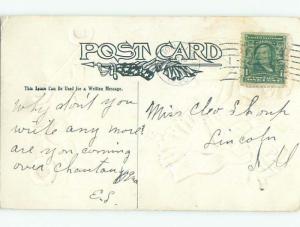 POST CARD
This Space Can Be Used for a Written Message.
why don't you
write any more
are you coming
over
E.S.
Miss Cleo Shoup
Lincoln
Ill